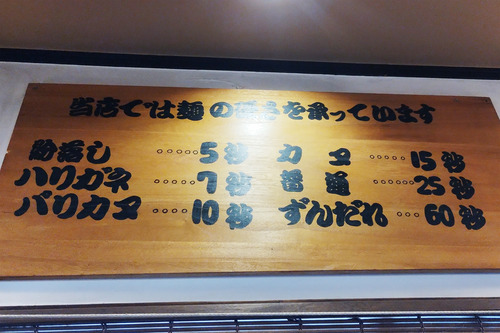 当店では麺の硬さを承っています
粉落し ・・・・・ 5秒 カタ ・・・・・ 15秒
ハリガネ ・・・・ 7秒 普通 ・・・・ 25秒
バリカタ ・・・・ 10秒 ずんだれ ・・・ 60秒